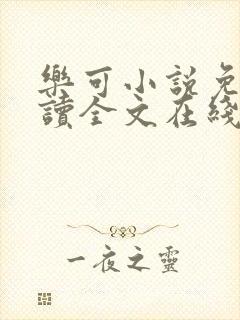 樂可小說免
讀全文在綫
一夜之靈